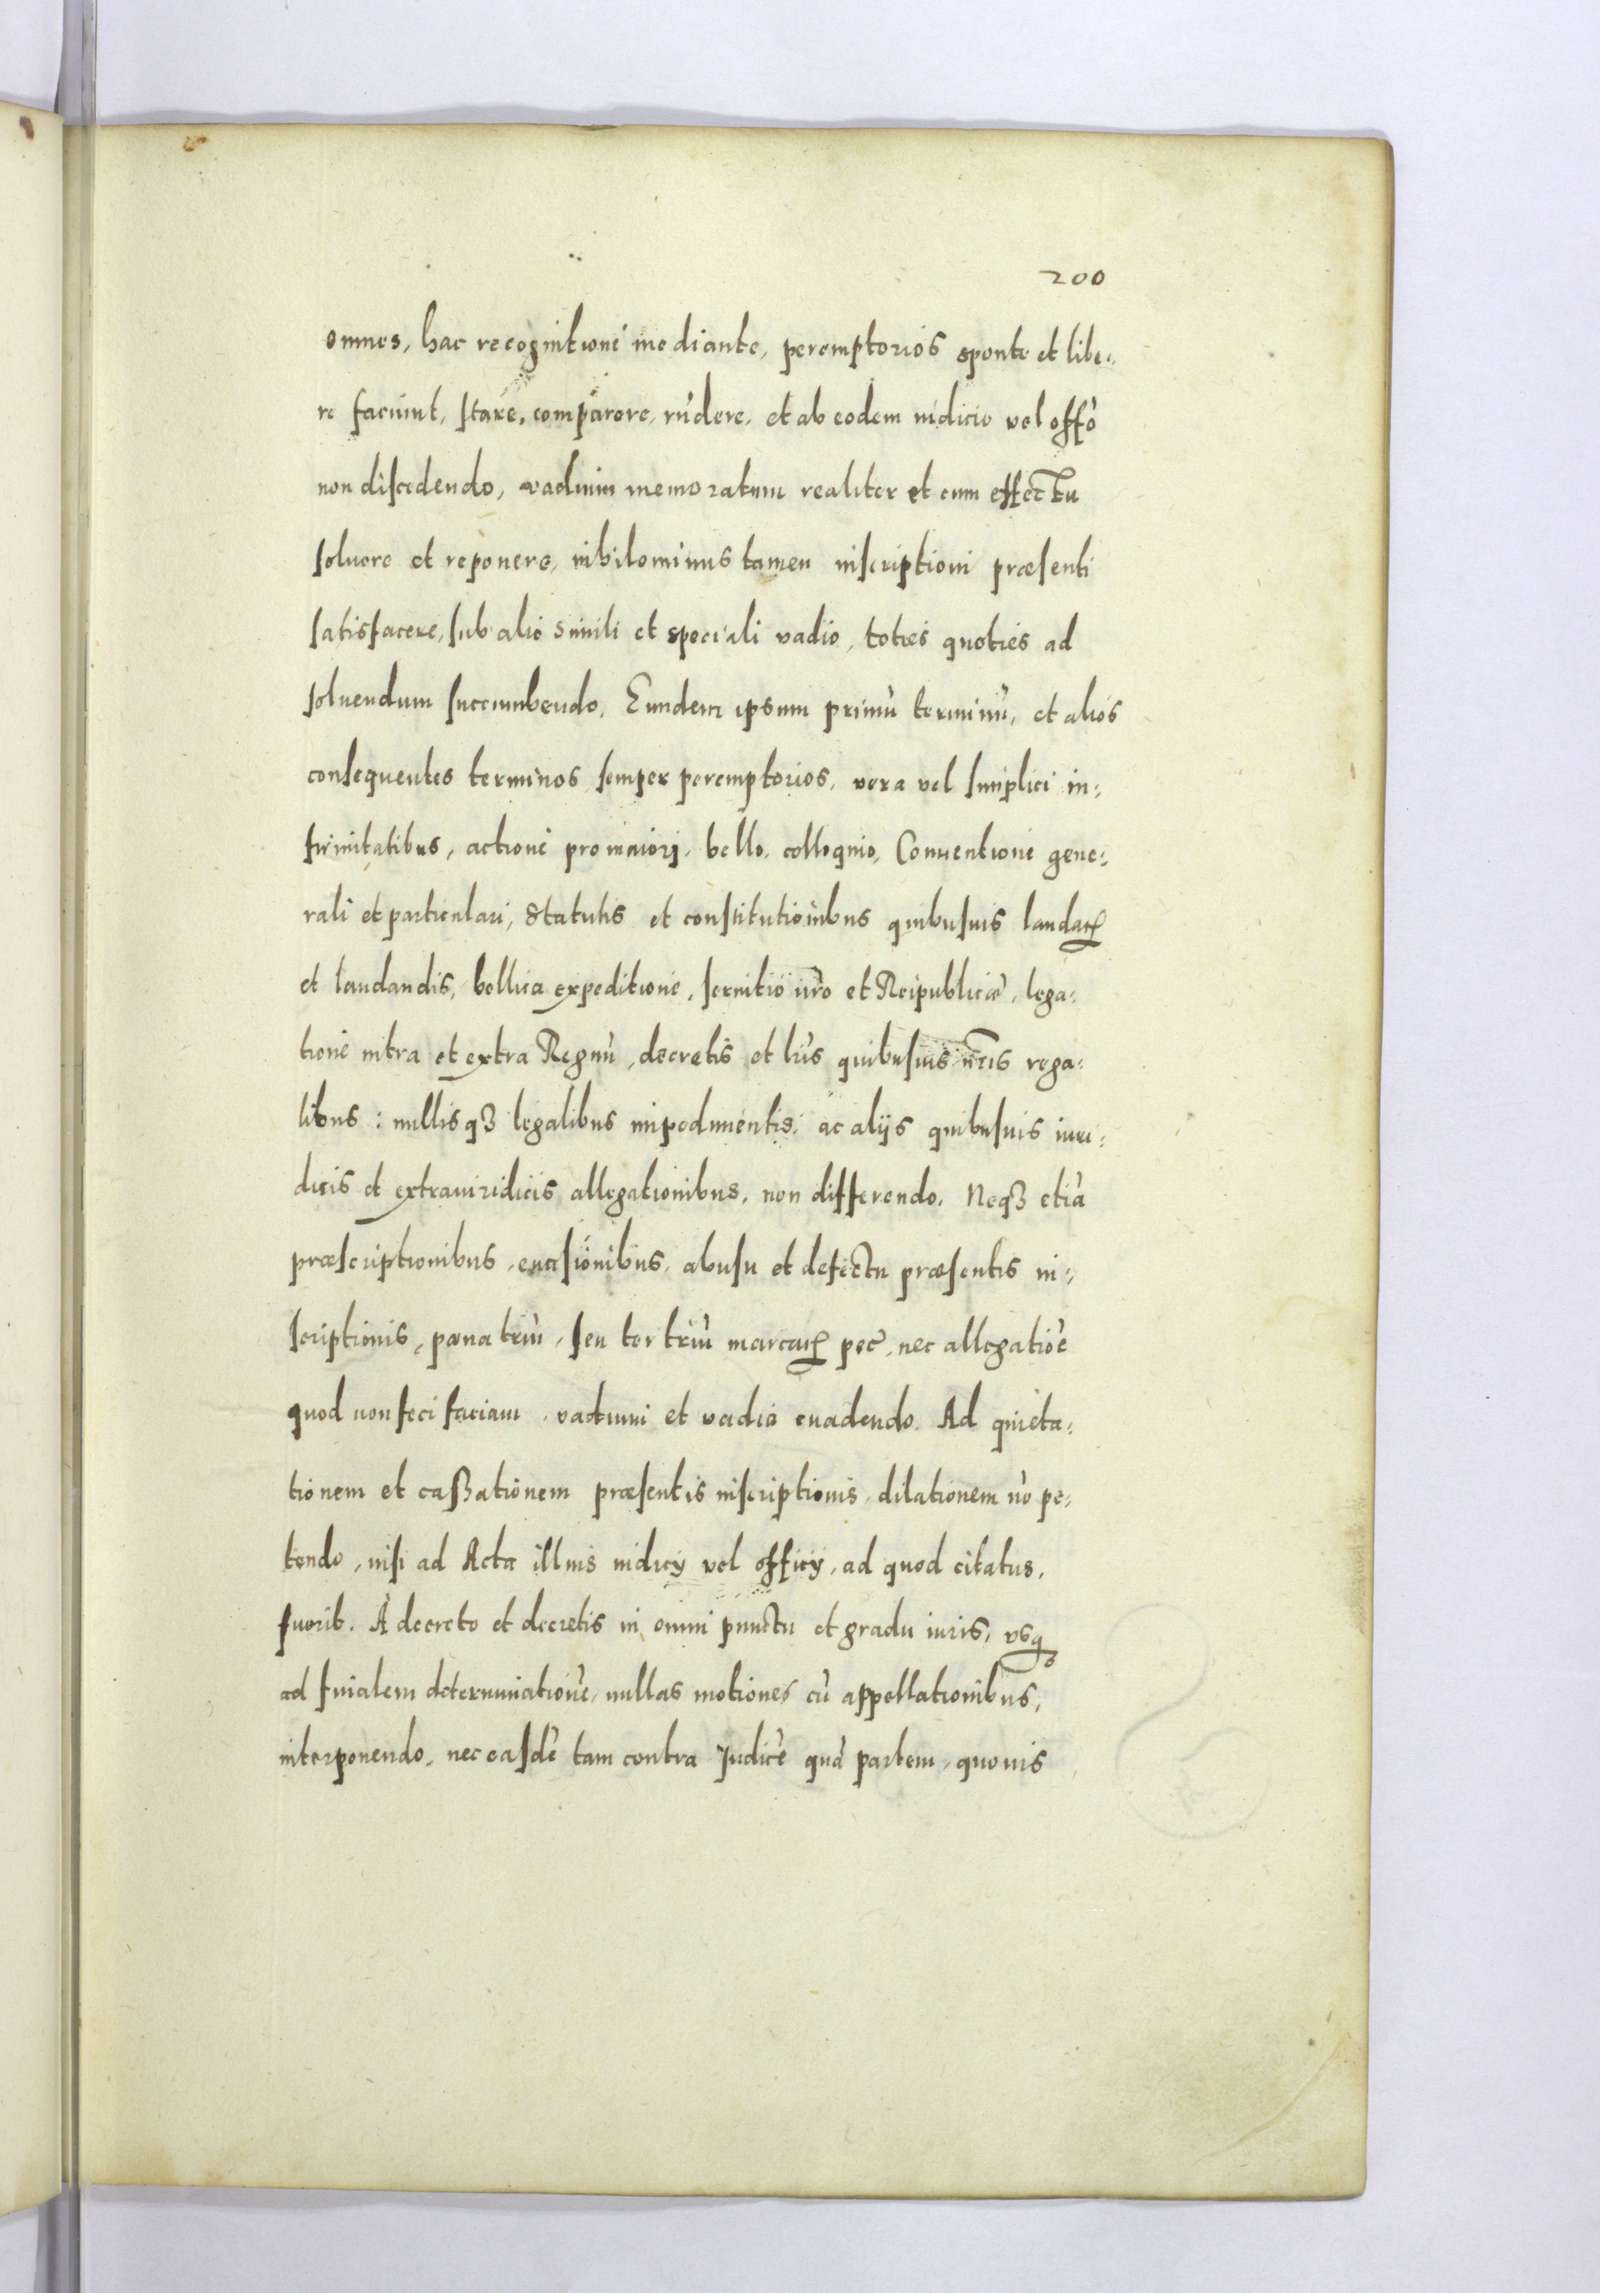 200
omnes, hac recognitione mediante, peremptorios sponte et libe:
re faciunt, stare, comparere, rñdere, et ab eodem iudicio vel offo
non discedendo, vadium memoratum realiter et cum effectu
soluere et reponere, nihilominus tamen inscriptioni præsenti
satisfacere, sub alio simili et speciali vadio, toties quoties ad
soluendum succumbendo. Eundem ipsum primũ terminũ, et alios
consequentes terminos semper peremptorios, vera vel simplici in:
firmitatibus, actione pro maiori, bello, colloquio, Conuentione gene:
rali et particulari, Statutis et constitutionibus quibusuis laudatꝝ
et laudandis, bellica expeditione, seruitio nr̃o et Reipublicæ, lega:
tione intra et extra Regnũ, decretis et lr̃is quibusuis nr̃is rega:
libus: nullisqȝ legalibus impedimentis, ac alijs quibusuis iuri:
dicis et extraiuridicis allegationibus, non differendo. Neqȝ etiã
præscriptionibus, euasionibus, abusu et defectu præsentis in:
scriptionis, pœna triũ, seu ter triũ marcarꝝ pec̃, nec allegatiõe
quod non feci faciam, vadium et vadia euadendo. Ad quieta:
tionem et caßationem præsentis inscriptionis, dilationem nõ pe:
tendo, nisi ad Acta illius iudicÿ vel officÿ, ad quod citatus,
fuerit. A decreto et decretis in omni punctu et gradu iuris, vsqȝ
ad finalem determinationẽ, nullas motiones cũ appellationibus,
interponendo, nec easdẽ tam contra Iudicẽ quã partem, quouis